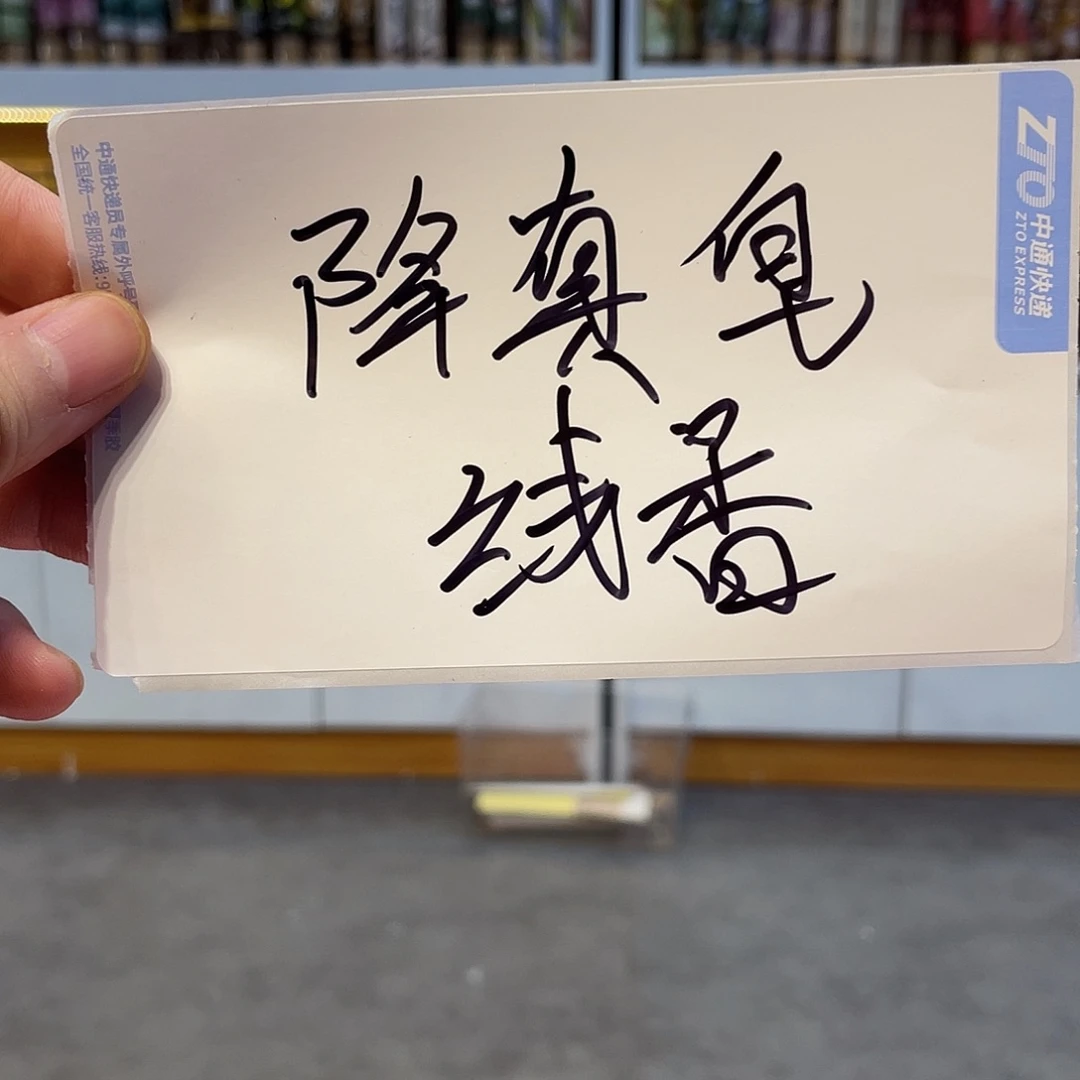 降真皂
线香
ZTO 中通快递
ZTO EXPRESS
中通快递员专属外呼号
全国统一客服热线:9